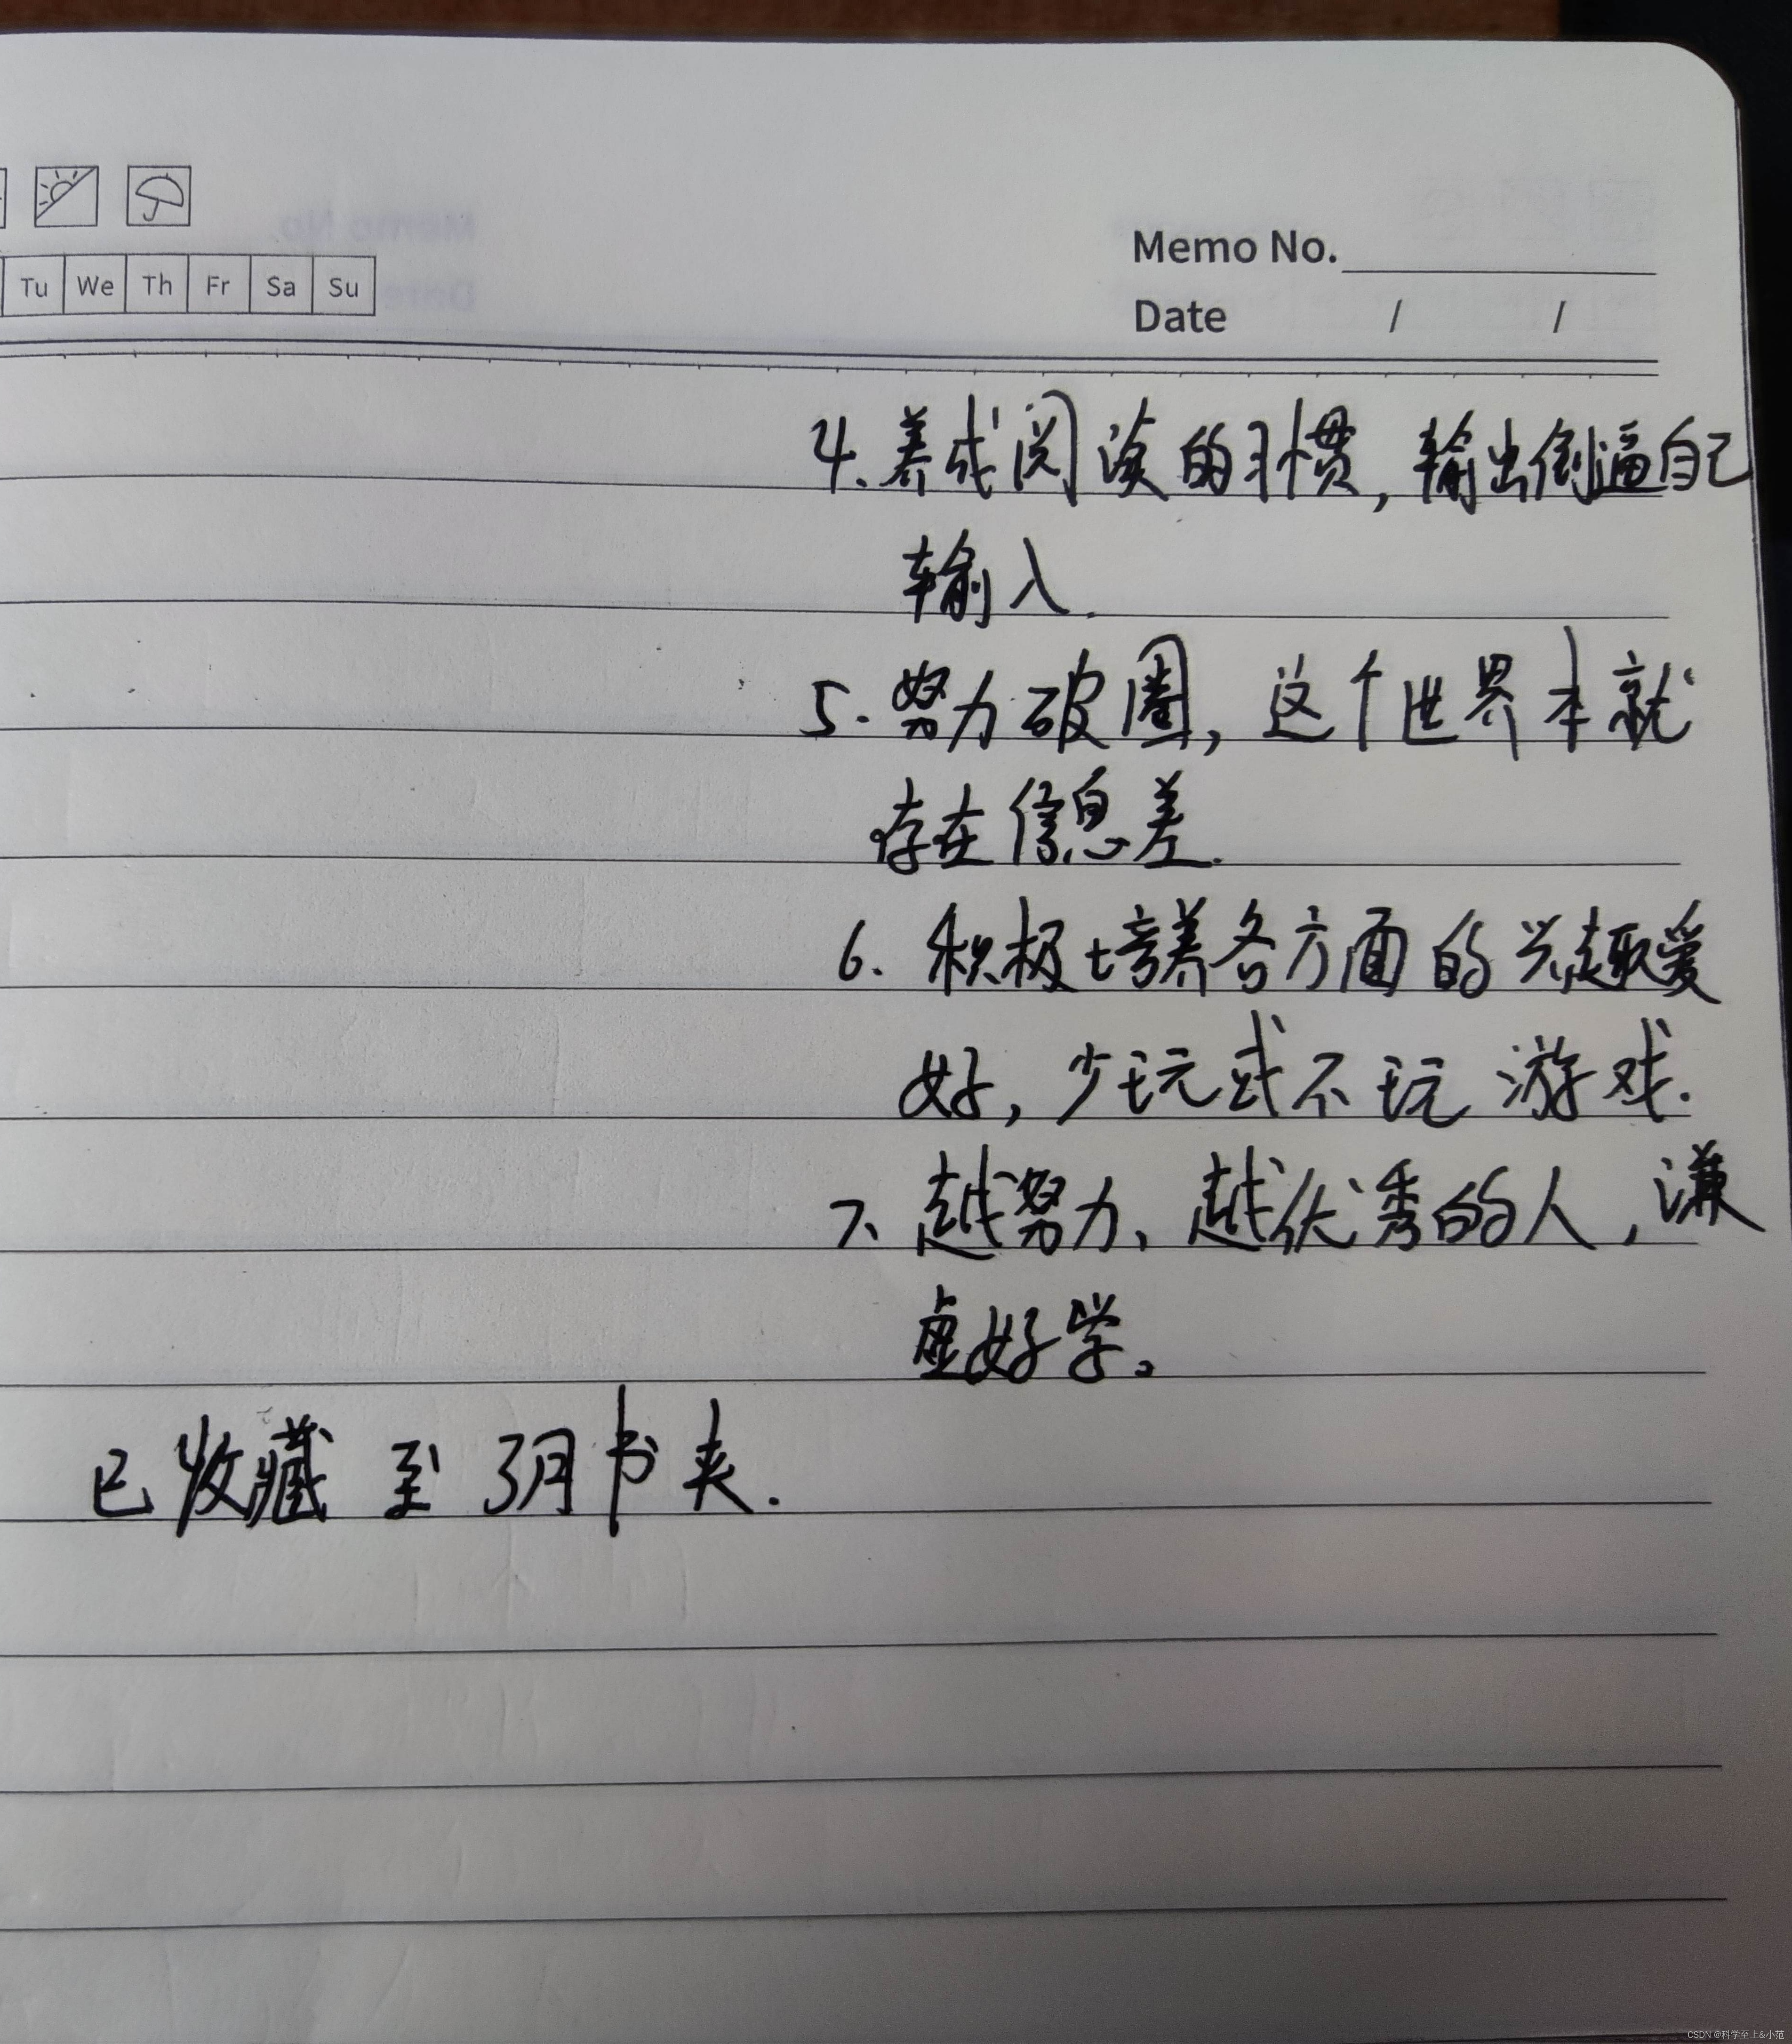 Memo No.
Tu We Th Fr Sa Su
Date / /
4.养成阅读的习惯,输出倒逼自己
输入.
5.努力破圈,这个世界本就
存在信息差.
6.积极培养各方面的兴趣爱
好,少玩或不玩游戏.
7、越努力、越优秀的人,谦
虚好学。
已收藏至3月书夹.
CSDN @科学至上&小范